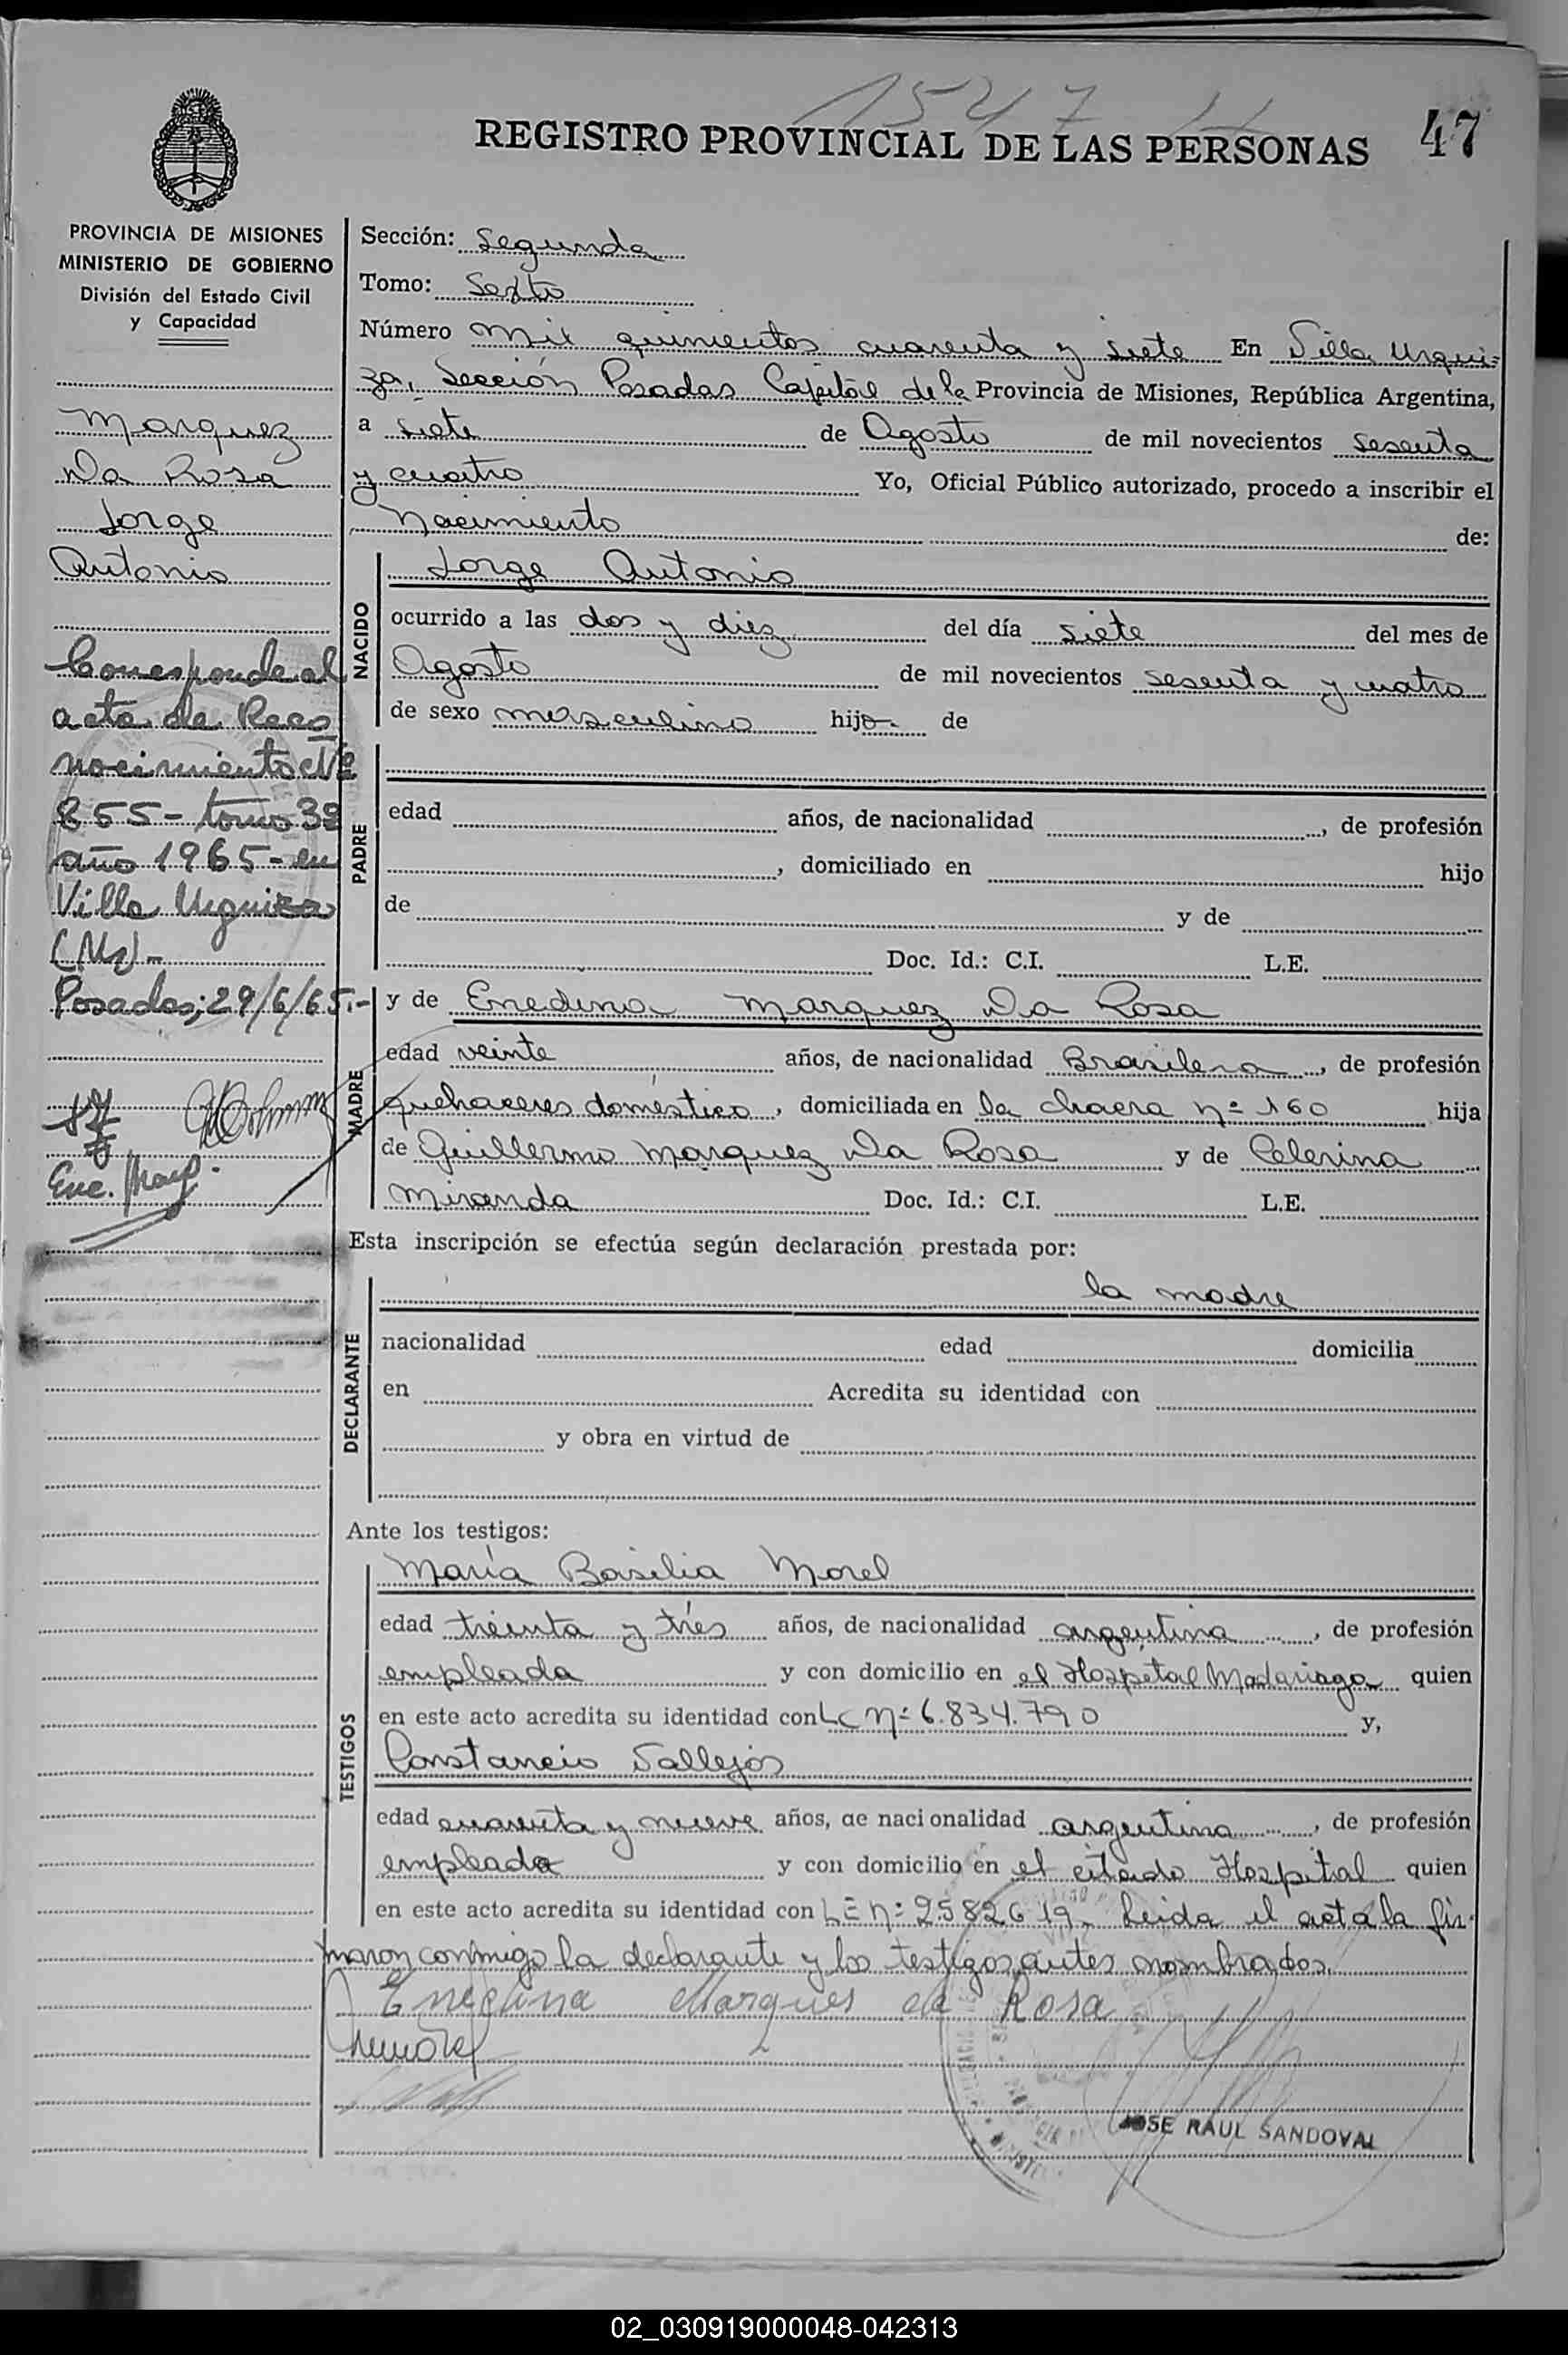 1547
REGISTRO PROVINCIAL DE LAS PERSONAS 47
PROVINCIA DE MISIONES
MINISTERIO DE GOBIERNO
División del Estado Civil
y Capacidad
Marquez
Da Rosa
Jorge
Antonio
Corresponde al
acta de Reco
nocimiento Nº
855 - tomo 3º
año 1965 - en
Villa Urquiza
(Ms) -
Posadas; 29/6/65.-
Enc.
Sección: Segunda
Tomo: Sexto
Número Mil quinientos cuarenta y siete En Villa Urqui-
za, Sección Posadas Capital de la Provincia de Misiones, República Argentina,
a siete de Agosto de mil novecientos sesenta
y cuatro Yo, Oficial Público autorizado, procedo a inscribir el
Nacimiento de:
NACIDO
Jorge Antonio
ocurrido a las dos y diez del día siete del mes de
Agosto de mil novecientos sesenta y cuatro
de sexo masculino hijo de
PADRE
edad años, de nacionalidad , de profesión
, domiciliado en hijo
de y de
Doc. Id.: C.I. L.E.
MADRE
y de Enedina Marquez Da Rosa
edad veinte años, de nacionalidad Brasilera , de profesión
quehaceres doméstico , domiciliada en la chacra nº 160 hija
de Guillermo Marquez Da Rosa y de Celerina
Miranda Doc. Id.: C.I. L.E.
Esta inscripción se efectúa según declaración prestada por:
DECLARANTE
la madre
nacionalidad edad domicilia
en Acredita su identidad con
y obra en virtud de
Ante los testigos:
TESTIGOS
María Basilia Morel
edad treinta y tres años, de nacionalidad argentina , de profesión
empleada y con domicilio en el Hospital Madariaga quien
en este acto acredita su identidad con LC nº 6.834.790 y,
Constancio Vallejos
edad cuarenta y nueve años, de nacionalidad argentina , de profesión
empleado y con domicilio en el citado Hospital quien
en este acto acredita su identidad con LE nº 2582619. Leida el acta la fir-
maron conmigo la declarante y los testigos antes nombrados.
Enedina Marques da Rosa
JOSE RAUL SANDOVAL
02_030919000048-042313